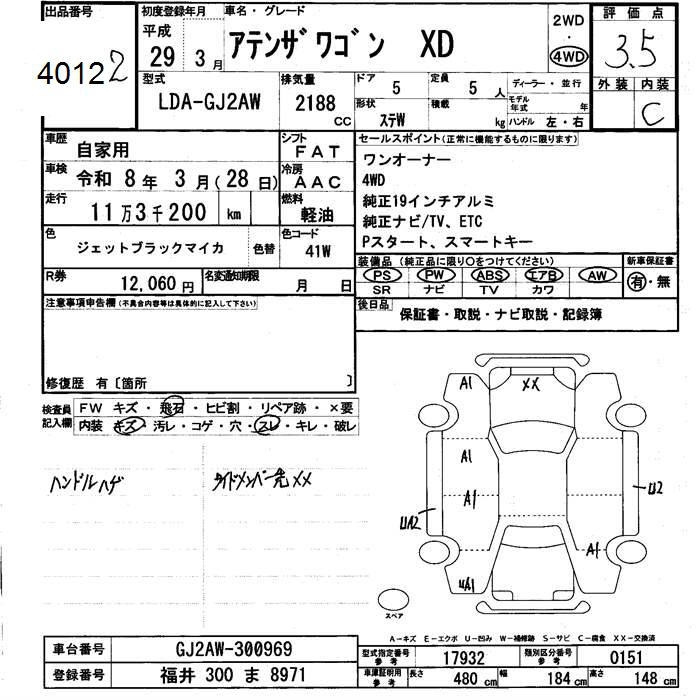 出品番号
40122
初度登録年月
平成
29 3月
車名・グレード
アテンザワゴン XD
2WD
・
4WD
評価点
3.5
外装 内装
C
型式
LDA-GJ2AW
排気量
2188
cc
ドア
5
定員
5
人
形状
ステW
積載
kg
ディーラー・並行
モデル年式 年
ハンドル 左・右
車歴
自家用
シフト
FAT
車検
令和 8年 3月(28日)
冷房
AAC
走行
11万3千200 km
燃料
軽油
色
ジェットブラックマイカ
色替
色コード
41W
R券
12,060円
名変通知期限
月 日
セールスポイント(正常に機能するものに限ります)
ワンオーナー
4WD
純正19インチアルミ
純正ナビ/TV、ETC
Pスタート、スマートキー
装備品(純正品に限り○をつけてください)
PS PW ABS エアB AW
SR ナビ TV カワ
新車保証書
有・無
後日品
保証書・取説・ナビ取説・記録簿
注意事項申告欄(不具合内容等は具体的に記入して下さい)
修復歴 有〔箇所 〕
検査員記入欄
FW キズ・飛石・ヒビ割・リペア跡・×要
内装 キズ・汚レ・コゲ・穴・スレ・キレ・破レ
ハンドルハゲ
サイドメンバー先XX
A1
XX
A1
A1
U2
UA2
A1
UA1
スペア
A-キズ E-エクボ U-凹み W-補修跡 S-サビ C-腐食 XX-交換済
車台番号
GJ2AW-300969
登録番号
福井 300 ま 8971
型式指定番号
参考
17932
類別区分番号
参考
0151
車庫証明用
参考
長さ
480 cm
幅
184 cm
高さ
148 cm